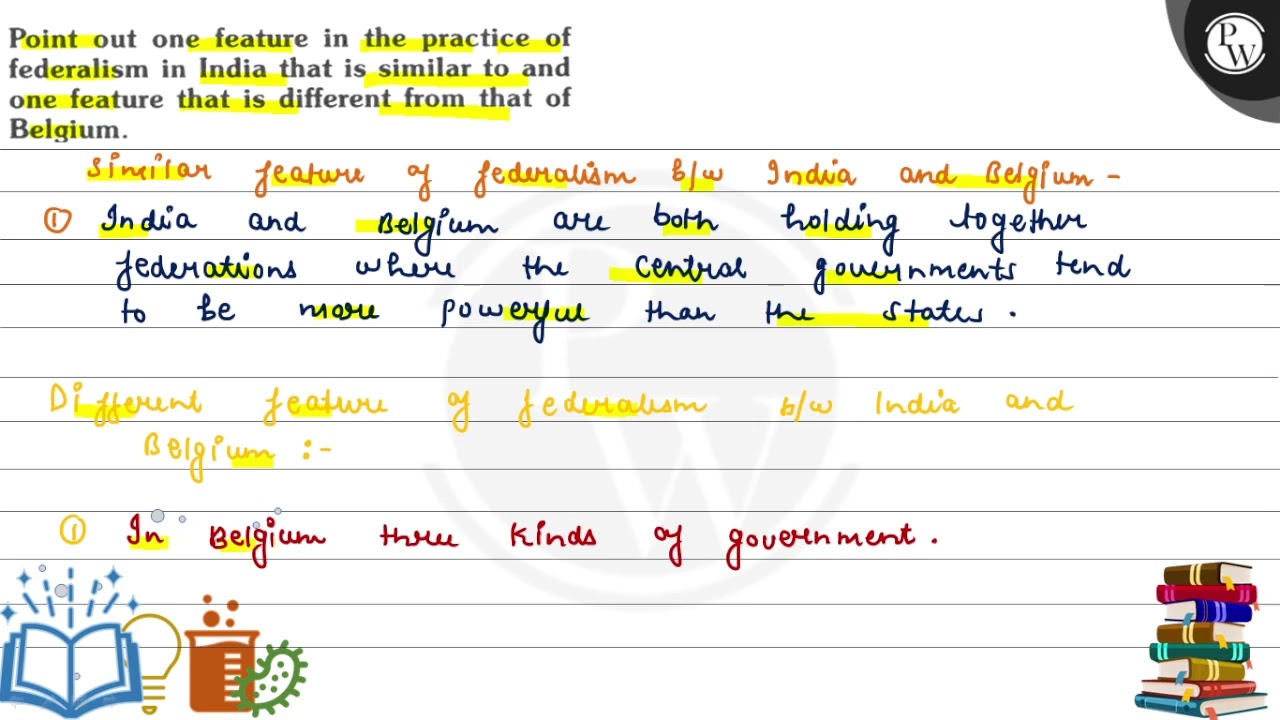 Point out one feature in the practice of
federalism in India that is similar to and
one feature that is different from that of
Belgium.
PW
Similar feature of federalism b/w India and Belgium -
① India and Belgium are both holding together
federations where the central governments tend
to be more powerful than the states.
Different feature of federalism b/w India and
Belgium :-
① In Belgium three kinds of government.